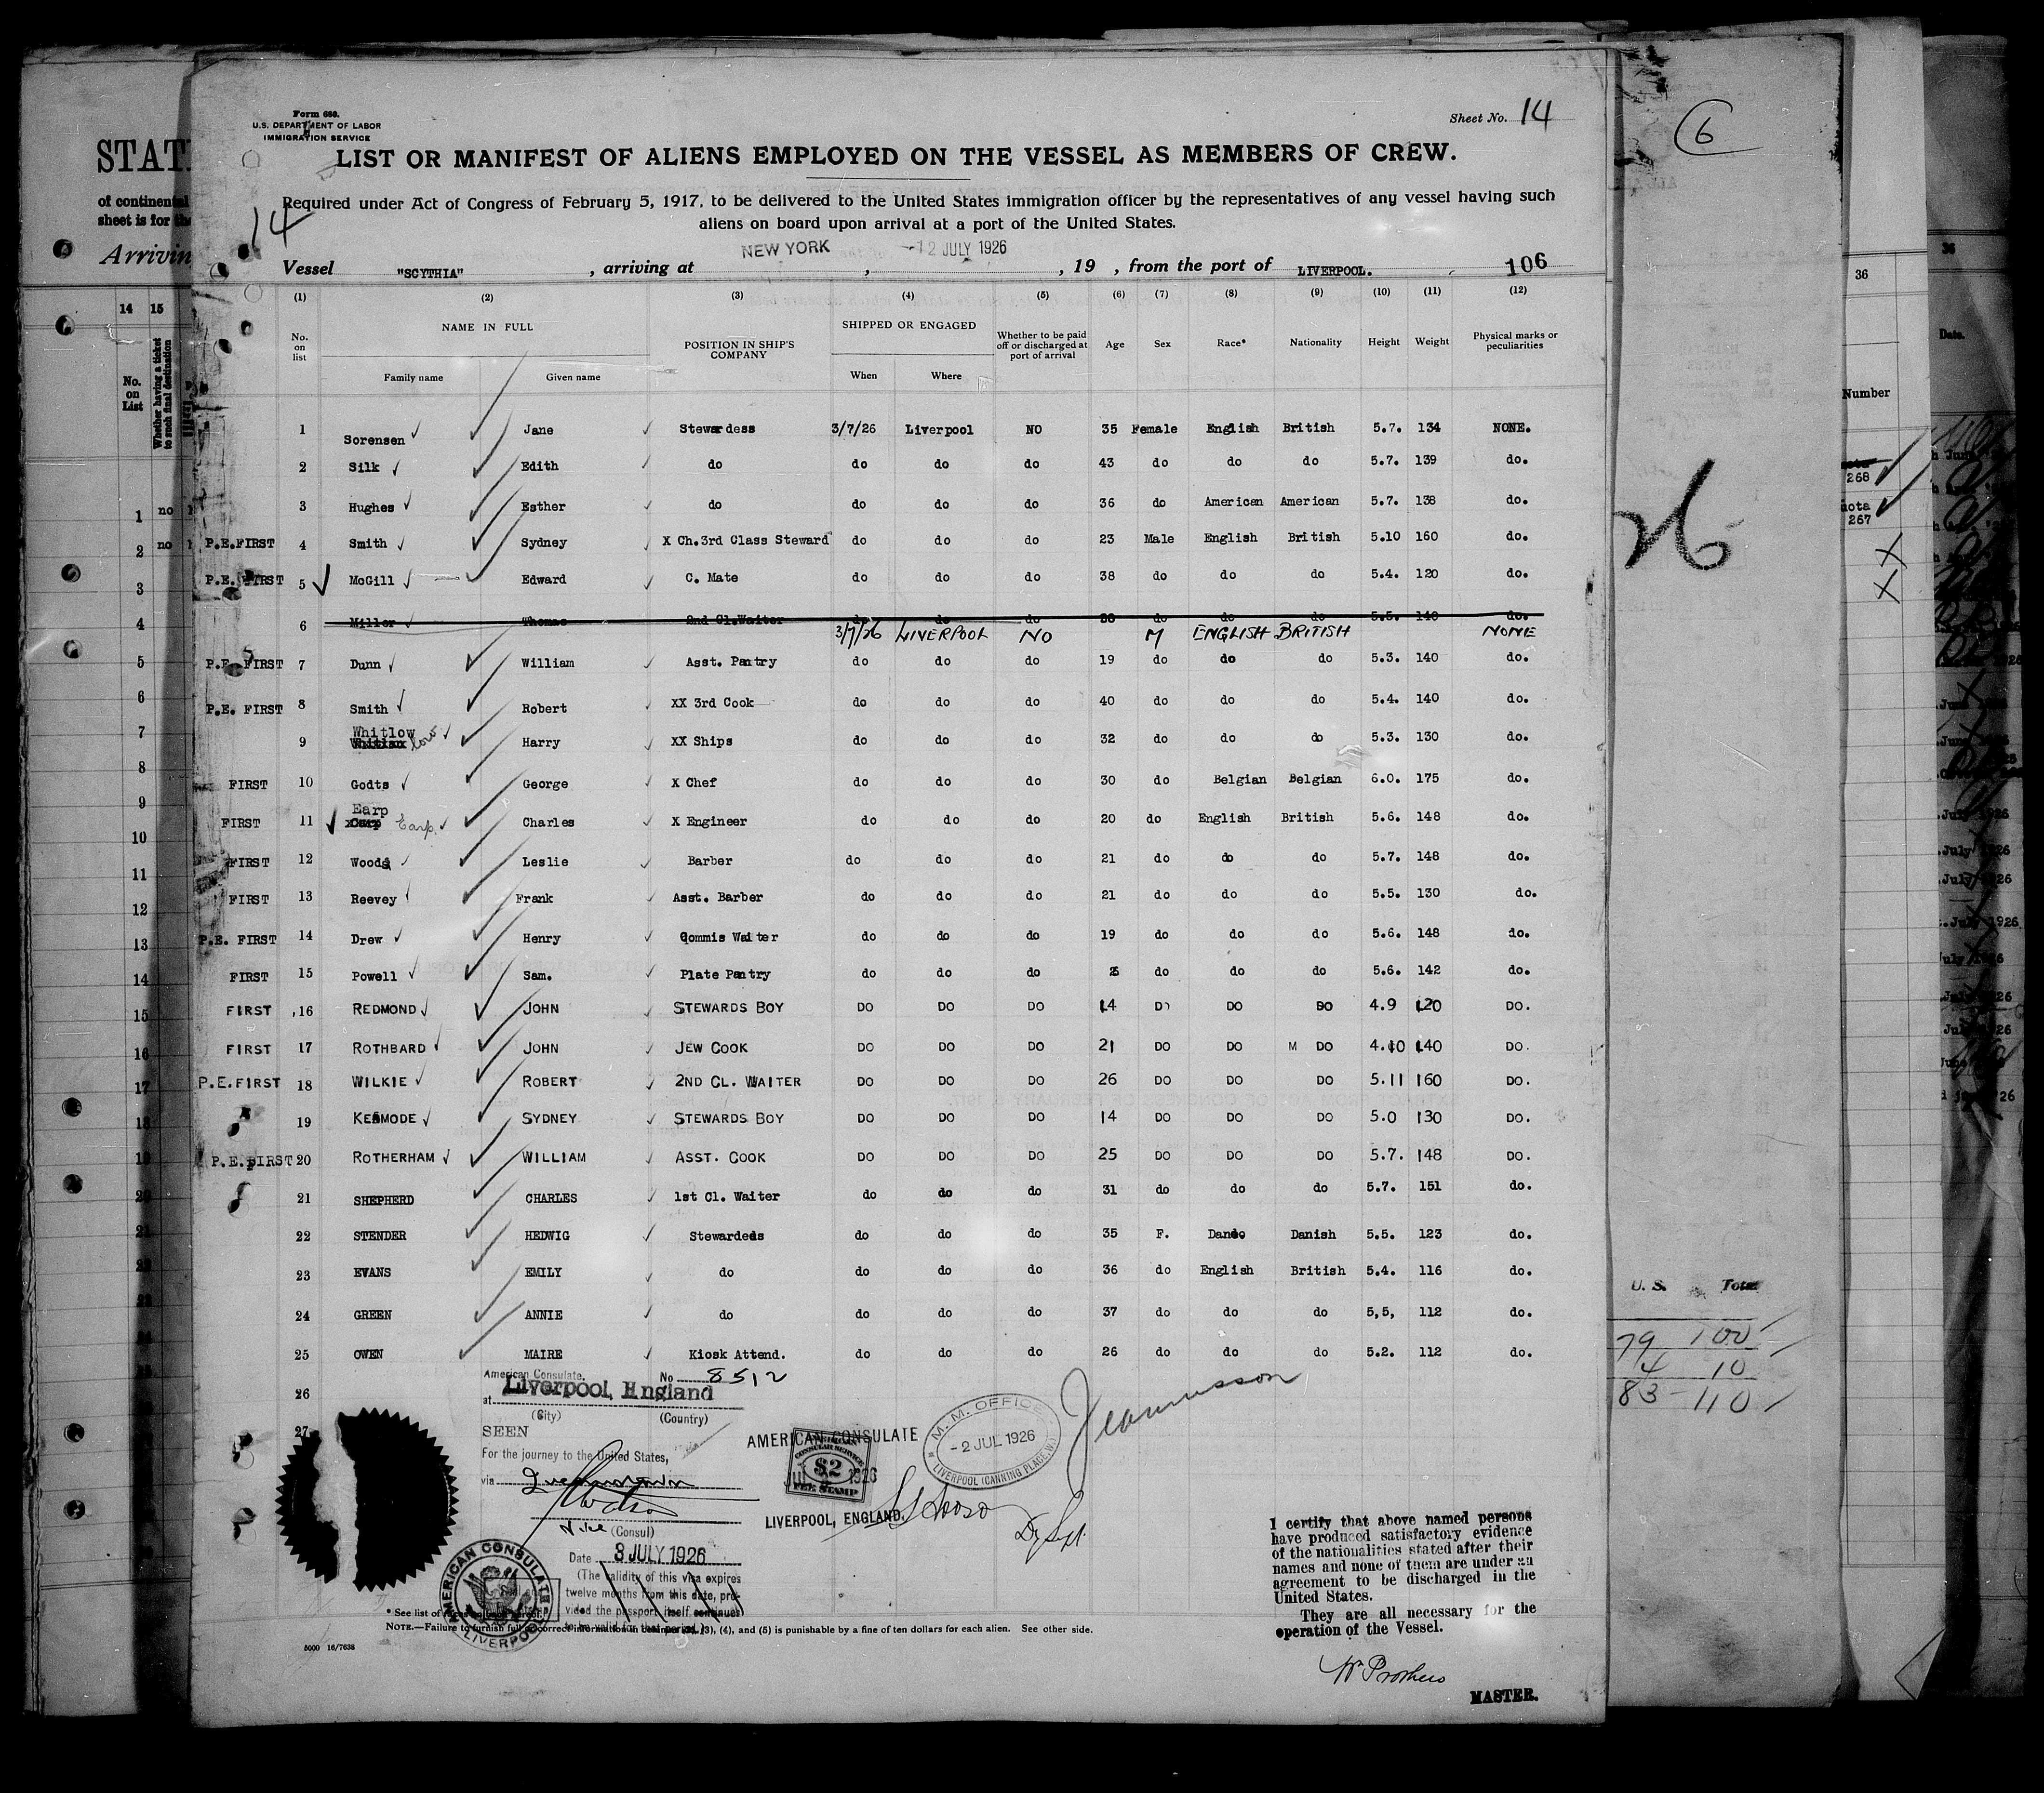 Form 686.
U.S. DEPARTMENT OF LABOR
IMMIGRATION SERVICE
Sheet No. 14
LIST OR MANIFEST OF ALIENS EMPLOYED ON THE VESSEL AS MEMBERS OF CREW.
Required under Act of Congress of February 5, 1917, to be delivered to the United States immigration officer by the representatives of any vessel having such
aliens on board upon arrival at a port of the United States.
14
NEW YORK 12 JULY 1926
Vessel "SCYTHIA" , arriving at , , 19 , from the port of LIVERPOOL. 106
(1) (2) (3) (4) (5) (6) (7) (8) (9) (10) (11) (12)
No. on list NAME IN FULL Family name Given name POSITION IN SHIP'S COMPANY SHIPPED OR ENGAGED When Where Whether to be paid off or discharged at port of arrival Age Sex Race* Nationality Height Weight Physical marks or peculiarities
1 Sorensen Jane Stewardess 3/7/26 Liverpool NO 35 Female English British 5.7. 134 NONE.
2 Silk Edith do do do do 43 do do do 5.7. 139 do.
3 Hughes Esther do do do do 36 do American American 5.7. 138 do.
P.E.FIRST 4 Smith Sydney X Ch.3rd Class Steward do do do 23 Male English British 5.10 160 do.
P.E. FIRST 5 McGill Edward C. Mate do do do 38 do do do 5.4. 120 do.
6 Miller Thomas 2nd Cl.Waiter do do do 28 do do do 5.5. 140 do.
3/7/26 LIVERPOOL NO M ENGLISH BRITISH NONE
P.E. FIRST 7 Dunn William Asst. Pantry do do do 19 do do do 5.3. 140 do.
P.E. FIRST 8 Smith Robert XX 3rd Cook do do do 40 do do do 5.4. 140 do.
9 Whitlow low Harry XX Ships do do do 32 do do do 5.3. 130 do.
FIRST 10 Godts George X Chef do do do 30 do Belgian Belgian 6.0. 175 do.
FIRST 11 Earp Earp. Charles X Engineer do do do 20 do English British 5.6. 148 do.
FIRST 12 Woods Leslie Barber do do do 21 do do do 5.7. 148 do.
FIRST 13 Reevey Frank Asst. Barber do do do 21 do do do 5.5. 130 do.
P.E. FIRST 14 Drew Henry Commis Waiter do do do 19 do do do 5.6. 148 do.
FIRST 15 Powell Sam. Plate Pantry do do do do do do 5.6. 142 do.
FIRST 16 REDMOND JOHN STEWARDS BOY DO DO DO 14 DO DO DO 4.9 120 DO.
FIRST 17 ROTHBARD JOHN JEW COOK DO DO DO 21 DO DO M DO 4.10 140 DO.
P.E.FIRST 18 WILKIE ROBERT 2ND CL. WAITER DO DO DO 26 DO DO DO 5.11 160 DO.
19 KERMODE SYDNEY STEWARDS BOY DO DO DO 14 DO DO DO 5.0 130 DO.
P.E.FIRST 20 ROTHERHAM WILLIAM ASST. COOK DO DO DO 25 DO DO DO 5.7. 148 DO.
21 SHEPHERD CHARLES 1st Cl. Waiter do do do 31 do do do 5.7. 151 do.
22 STENDER HEDWIG Stewardess do do do 35 F. Dane Danish 5.5. 123 do.
23 EVANS EMILY do do do do 36 do English British 5.4. 116 do.
24 GREEN ANNIE do do do do 37 do do do 5,5, 112 do.
25 OWEN MAIRE Kiosk Attend. do do do 26 do do do 5.2. 112 do.
26
27
American Consulate. No 8512
at Liverpool, England
(City) (Country)
SEEN
For the journey to the United States,
via
Vice (Consul)
Date 3 JULY 1926
(The validity of this visa expires
twelve months from this date, pro-
vided the passport itself continues
to be valid for that period.)
AMERICAN CONSULATE
LIVERPOOL
AMERICAN CONSULATE
AMERICAN CONSULAR SERVICE
$2
FEE STAMP
LIVERPOOL, ENGLAND.
M. M. OFFICE
-2 JUL 1926
LIVERPOOL (CANNING PLACE, W.)
I certify that above named persons
have produced satisfactory evidence
of the nationalities stated after their
names and none of them are under an
agreement to be discharged in the
United States.
They are all necessary for the
operation of the Vessel.
Wm Prothero
MASTER.
* See list of races
NOTE.—Failure to furnish full or correct information in columns (2), (3), (4), and (5) is punishable by a fine of ten dollars for each alien. See other side.
5000 16/7638
STAT
of continental
sheet is for the
Arrivin
14 15
No. on List
Whether having a ticket to such final destination
1 no
2 no
3
4
5
6
7
8
9
10
11
12
13
14
15
16
17
18
19
20
21
22
23
24
25
6
26
U. S. Total
79 100
4 10
83 - 110
36
Number
268
267
36
Date.